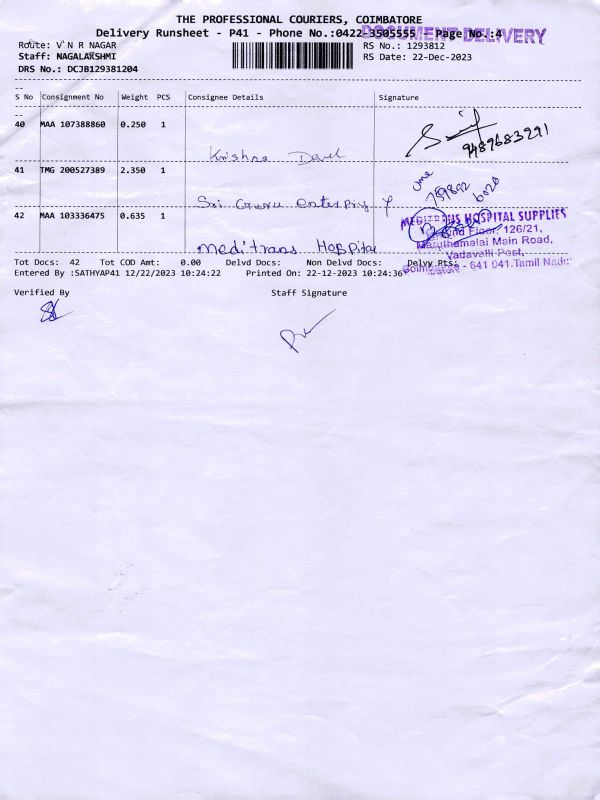 THE PROFESSIONAL COURIERS, COIMBATORE
Delivery Runsheet - P41 - Phone No.:0422-3505555 Page No.:4
DOCUMENT DELIVERY
Route: V`N R NAGAR RS No.: 1293812
Staff: NAGALAKSHMI RS Date: 22-Dec-2023
DRS No.: DCJB129381204
S No Consignment No Weight PCS Consignee Details Signature
40 MAA 107388860 0.250 1
9489683291
Krishna
41 TMG 200527389 2.350 1
Sri Guru
42 MAA 103336475 0.635 1
HOSPITAL SUPPLIES
Floor, 126/21,
Maruthamalai Main Road,
Meditrans Hospital
Vadavalli Post,
Coimbatore - 641 041.Tamil Nadu
Tot Docs: 42 Tot COD Amt: 0.00 Delvd Docs: Non Delvd Docs: Delvy Pts:
Entered By :SATHYAP41 12/22/2023 10:24:22 Printed On: 22-12-2023 10:24:36
Verified By Staff Signature